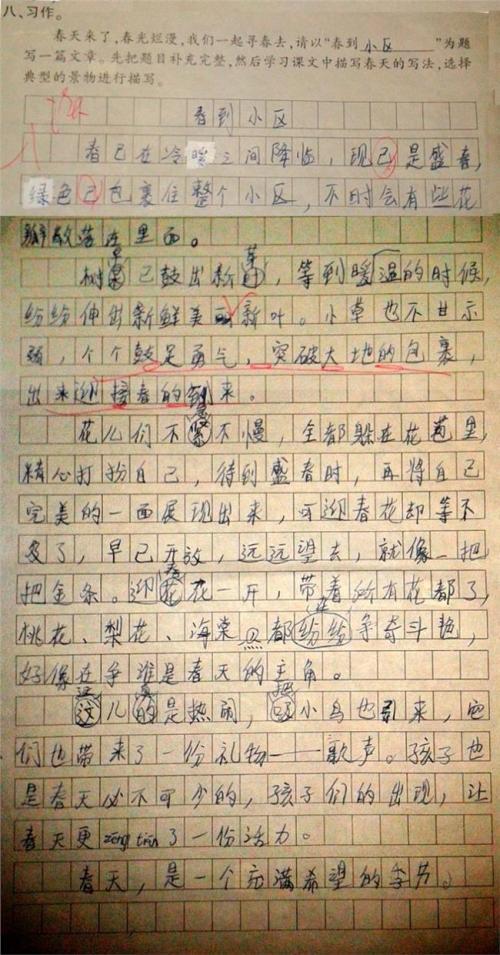 八、习作。
春天来了,春光烂漫,我们一起寻春去,请以“春到小区”为题
写一篇文章。先把题目补充完整,然后学习课文中描写春天的写法,选择
典型的景物进行描写。
春到小区
春已在冷暖之间降临,现已是盛春,
绿色已包裹住整个小区,不时会有些花
瓣散落在里面。
树已鼓出新芽,等到暖温的时候,
纷纷伸出新鲜美丽新叶。小草也不甘示
弱,个个鼓足勇气,突破大地的包裹,
出来迎接春的到来。
花儿们不急不慢,全都躲在花苞里,
精心打扮自己,待到盛春时,再将自己
完美的一面展现出来,可迎春花却等不
及了,早已开放,远远望去,就像一把
把金条。迎春花一开,带着所有花都了,
桃花、梨花、海棠都纷纷争奇斗艳,
好像在争谁是春天的主角。
这儿真是热闹,把小鸟也引来,它
们也带来了一份礼物——歌声。孩子也
是春天必不可少的,孩子们的出现,让
春天更zēng tiān了一份活力。
春天,是一个充满希望的季节。